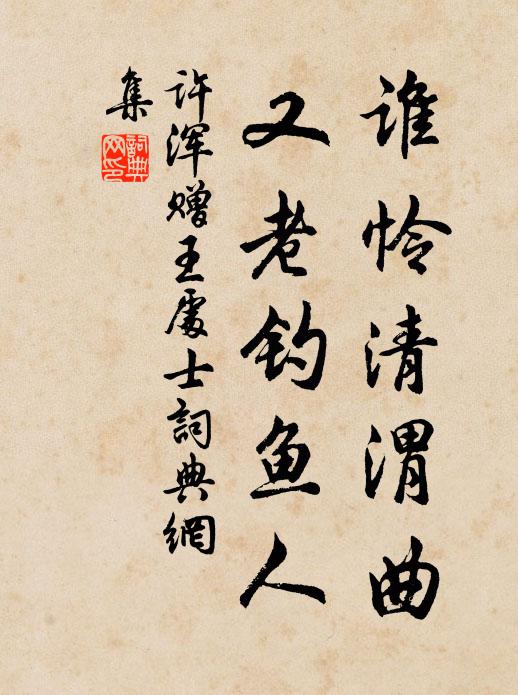 谁怜清渭曲
又老钓鱼人
许浑赠王处士詞典網
集
詞典网印